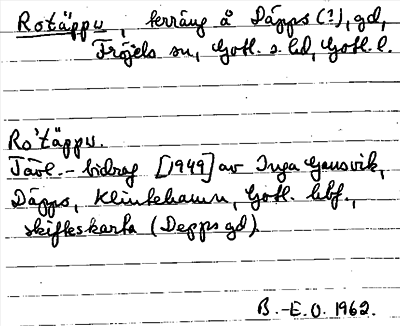 Rotäppu, terräng å Däpps (?), gd,
Fröjels sn, Gotl. s. hd, Gotl. l.
Ro'täppu.
Tävl.-bidrag [1949] av Inga Gansvik,
Däpps, Klintehamn, Gotl. hbf.,
skifteskarta (Depps gd).
B.-E.O. 1962.